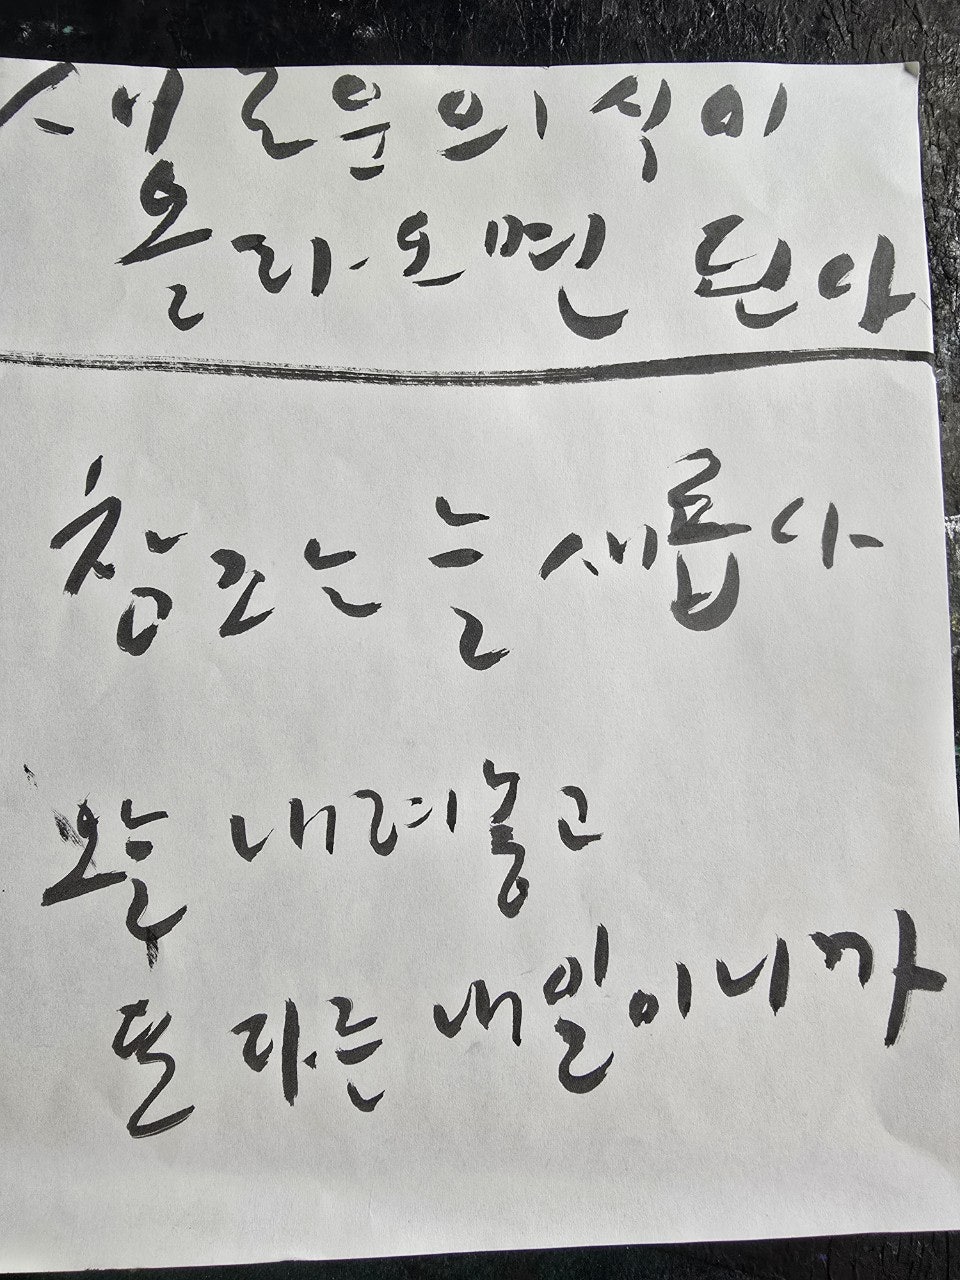 새로운 의식이
올라오면 된다
창조는 늘 새롭다
오늘 내려놓고
또 다른 내일이니까